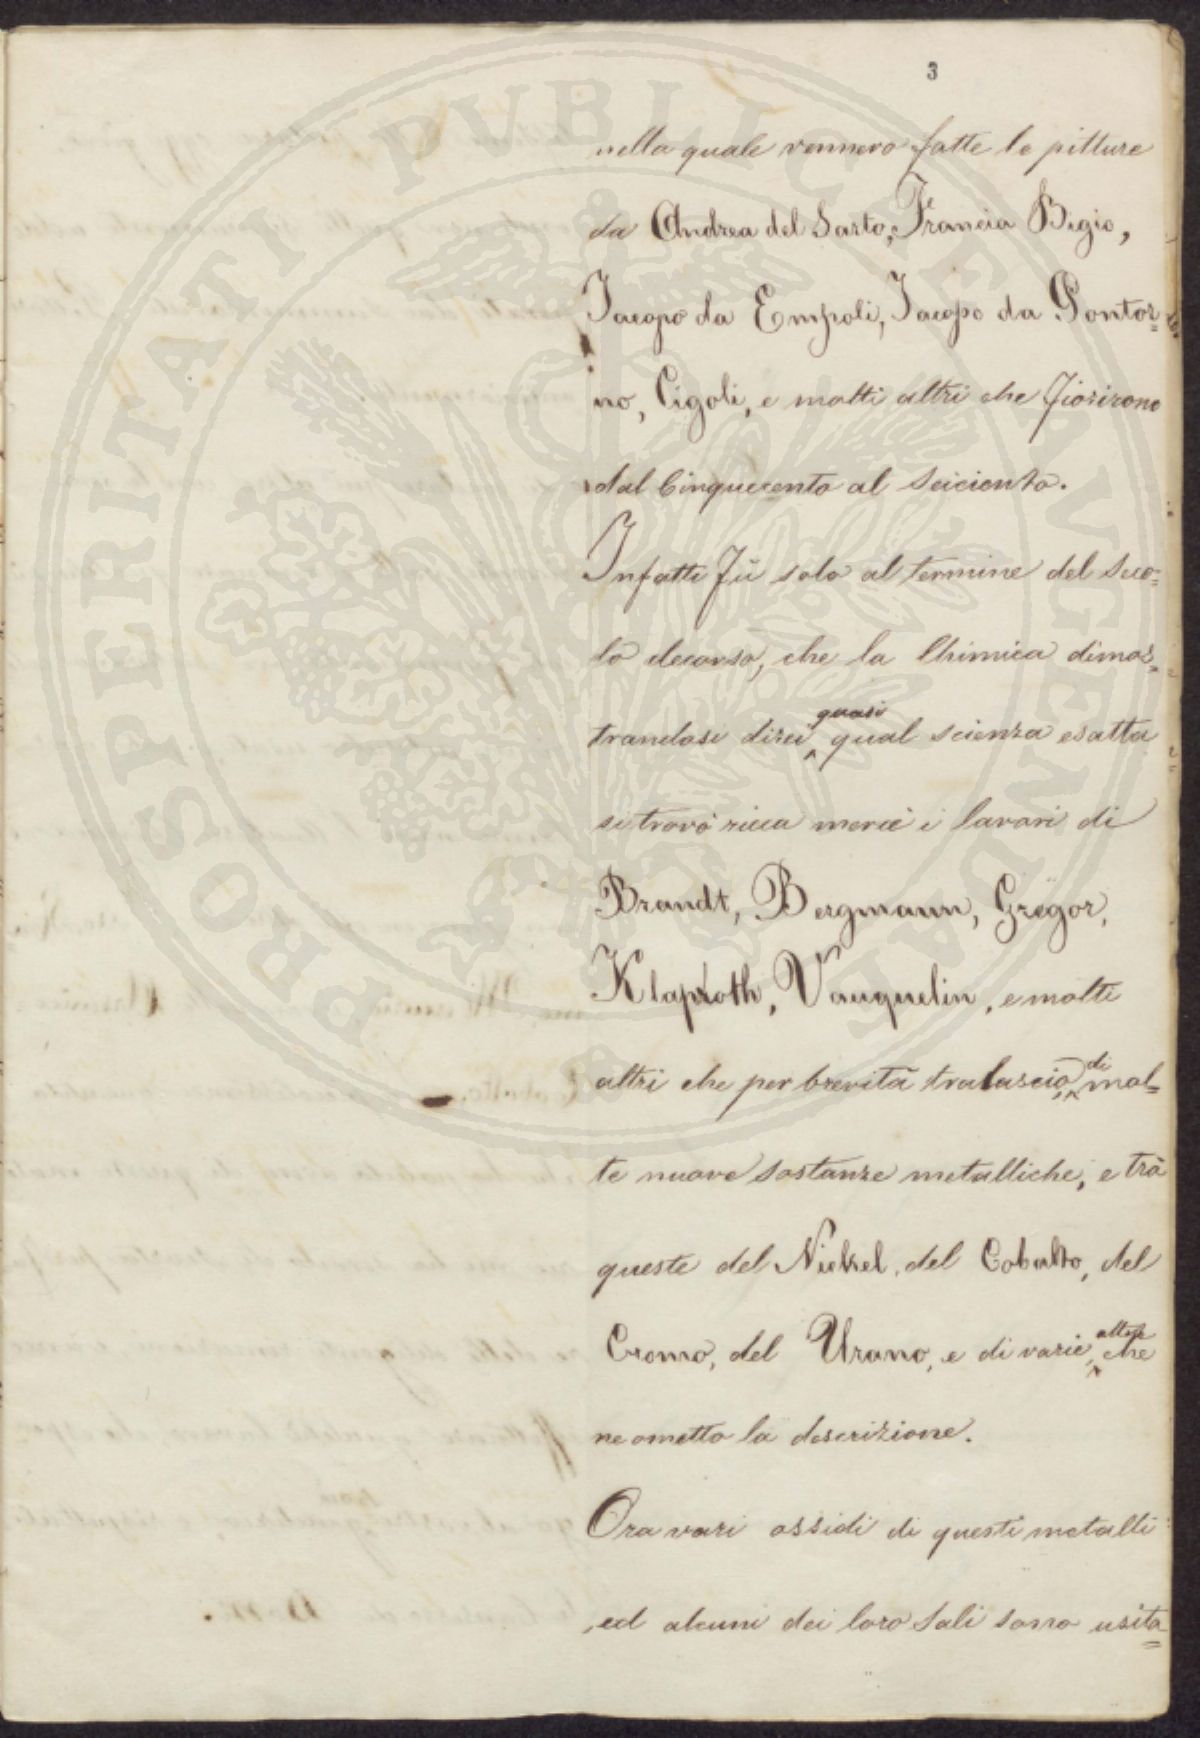 3
nella quale vennero fatte le pitture
da Andrea del Sarto, Francia Bigio,
Jacopo da Empoli, Jacopo da Pontor=
no, Cigoli, e molti altri che fiorirono
dal Cinquecento al Seicento.
Infatti fù solo al termine del Seco=
lo decorso, che la Chimica dimos=
trandosi direi quasi qual scienza esatta
si trovò ricca mercè i lavori di
Brandt, Bergmann, Gregor,
Klaproth, Vauquelin, e molti
altri che per brevità tralascio, di mol=
te nuove sostanze metalliche, e trà
queste del Nickel, del Cobalto, del
Cromo, del Urano, e di varie altre che
ne ometto la descrizione.
Ora vari ossidi di questi metalli
ed alcuni dei loro Sali sono usita=
PROSPERITATI PUBLICAE AUGENDAE